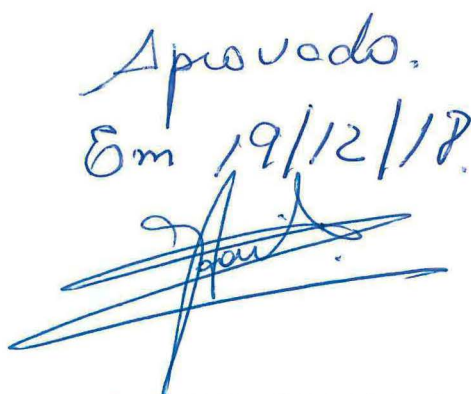 Aprovado.
Em 19/12/18.